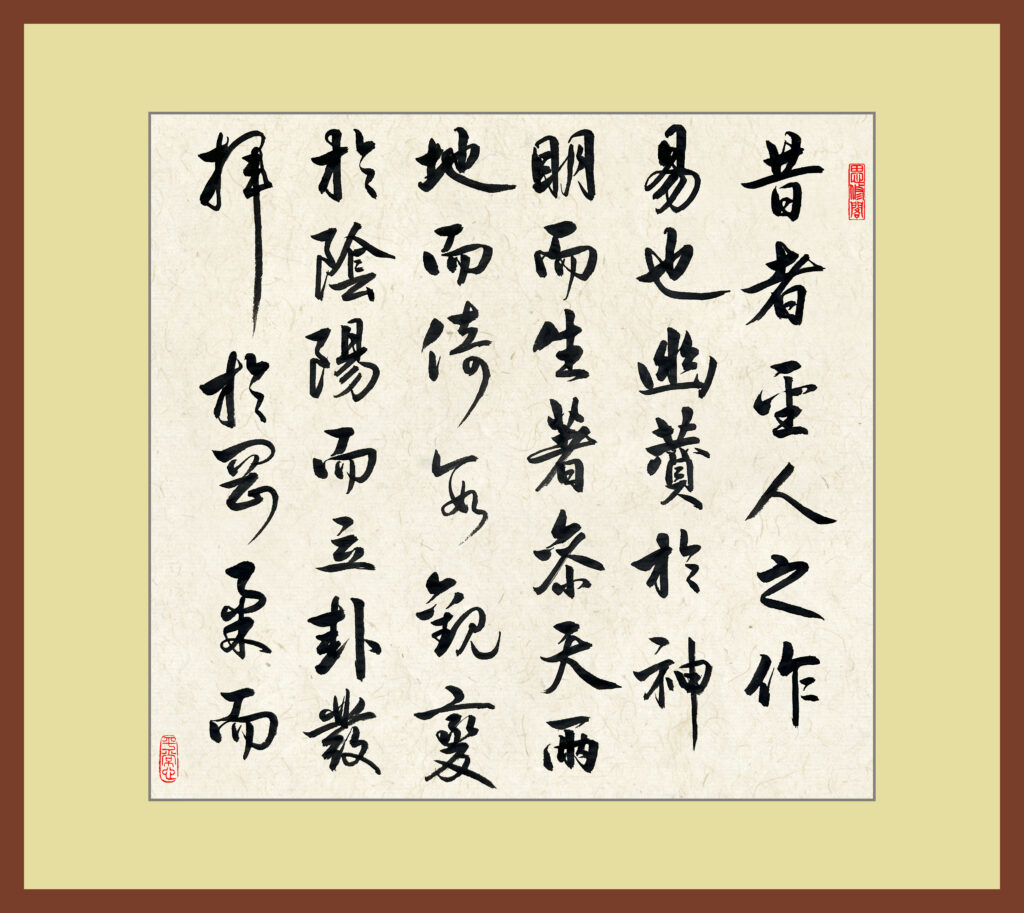 思修閣
昔者聖人之作
易也幽贊於神
明而生蓍參天兩
地而倚數觀變
於陰陽而立卦發
揮於剛柔而
平常心